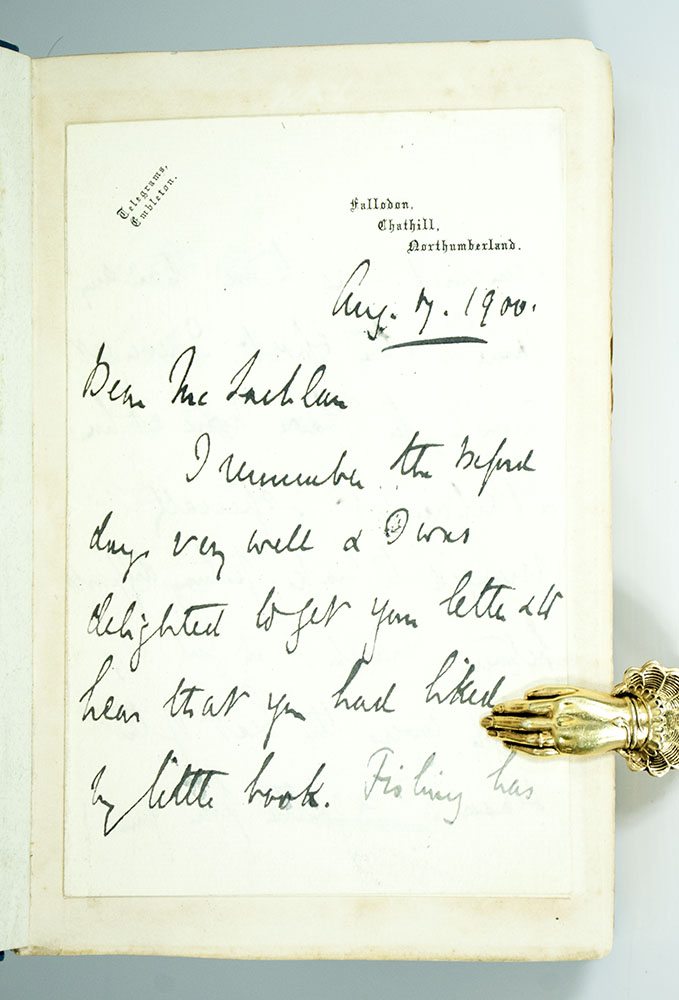 Telegrams,
Embleton.
Fallodon,
Chathill,
Northumberland.
Aug. 17. 1900.
Dear McLachlan
I remember the
days very well & I was
delighted to get your letter & to
hear that you had liked
my little book. Fishing has